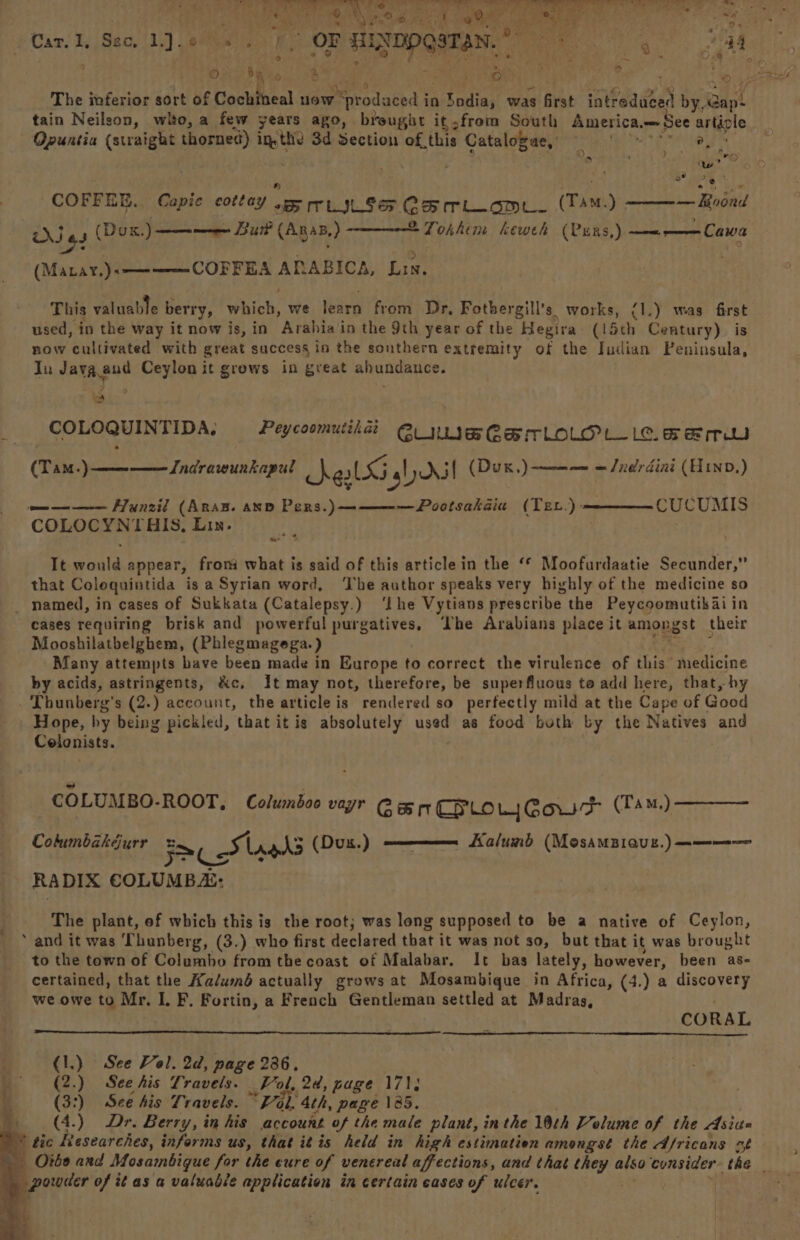 Cat. 1, Sec. 1.] OF HINDOOSTAN.
The inferior sort of Cochineal now produced in India, was first introduced by Capt
tain Neilson, who, a few years ago, brought it from South America.—See article
Opuntia (straight thorned) in the 3d Section of this Catalogue,
COFFEE. Capie cottay (Tam.) ——— Boond
(Duk.) ——— Bun (Arab.) ——— Tokhem keweh (Pers.) ——— Cawa
(Malay.) ——— COFFEA ARABICA, Lin.
This valuable berry, which, we learn from Dr. Fothergill's works, (1.) was first
used, in the way it now is, in Arabia in the 9th year of the Hegira (15th Century) is
now cultivated with great success in the southern extremity of the Indian Peninsula,
In Java and Ceylon it grows in great abundance.
COLOQUINTIDA, Peycoomutikái
(Tam.) ——— Indrawunkapul (Duk.) ——— Indrdini (Hind.)
——— Hunzil (Arab. and Pers.) ——— Pootsakáia (Tel.) ——— CUCUMIS
COLOCYNTHIS, Lin.
It would appear, from what is said of this article in the “ Moofurdaatie Secunder,”
that Coloquintida is a Syrian word. The author speaks very highly of the medicine so
named, in cases of Sukkata (Catalepsy.) The Vytians prescribe the Peycoomutikái in
cases requiring brisk and powerful purgatives, The Arabians place it amongst their
Mooshilatbelghem, (Phlegmagega.)
Many attempts have been made in Europe to correct the virulence of this medicine
by acids, astringents, &c. It may not, therefore, be superfluous to add here, that, by
Thunberg's (2.) account, the article is rendered so perfectly mild at the Cape of Good
Hope, by being pickled, that it is absolutely used as food both by the Natives and
Colonists.
COLUMBO-ROOT, Columboo vayr (Tam.) ———
Columbákdurr (Duk.) ——— Kalumb (Mosambique.) ———
RADIX COLUMBÆ.
The plant, of which this is the root; was long supposed to be a native of Ceylon,
and it was Thunberg, (3.) who first declared that it was not so, but that it was brought
to the town of Columbo from the coast of Malabar. It has lately, however, been as-
certained, that the Kalumb actually grows at Mosambique in Africa, (4.) a discovery
we owe to Mr. I. F. Fortin, a French Gentleman settled at Madras,
CORAL
(1.) See Vol. 2d, page 236.
(2.) See his Travels. Vol. 2d, page 171;
(3:) See his Travels. Vol. 4th, page 185.
(4.) Dr. Berry, in his account of the male plant, in the 10th Volume of the Asia-
tic Researches, informs us, that it is held in high estimation amongst the Africans at
Oibo and Mosambique for the cure of venereal affections, and that they also consider the
powder of it as a valuable application in certain cases of ulcer.